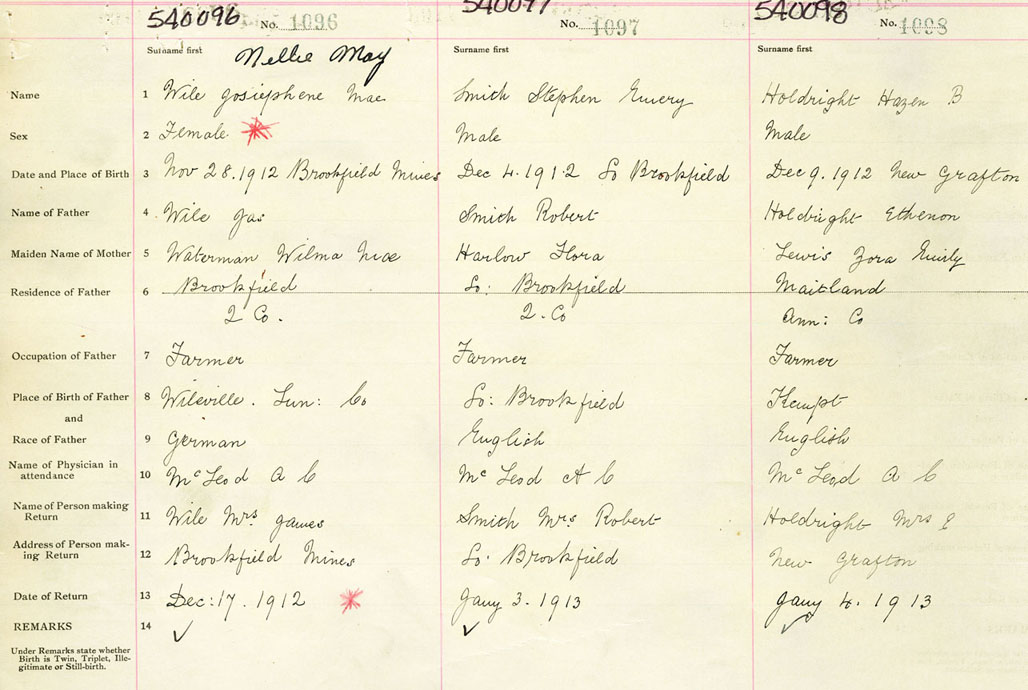 540096 No. 1096 540097 No. 1097 540098 No. 1098
Surname first Surname first Surname first
Nellie May
Name 1 Wile Josiephene Mae Smith Stephen Emery Holdright Hazen B
Sex 2 Female Male Male
Date and Place of Birth 3 Nov 28. 1912 Brookfield Mines Dec 4. 1912 So Brookfield Dec 9. 1912 New Grafton
Name of Father 4 Wile Jas Smith Robert Holdright Ethenon
Maiden Name of Mother 5 Waterman Wilma Harlow Flora Lewis Zora Emily
Residence of Father 6 Brookfield So: Brookfield Maitland
Q Co. Q. Co Ann: Co
Occupation of Father 7 Farmer Farmer Farmer
Place of Birth of Father 8 Wileville. Lun: Co So: Brookfield Kempt
and
Race of Father 9 German English English
Name of Physician in
attendance 10 McLeod A C McLeod A C McLeod A C
Name of Person making
Return 11 Wile Mrs James Smith Mrs Robert Holdright Mrs E
Address of Person mak-
ing Return 12 Brookfield Mines So. Brookfield New Grafton
Date of Return 13 Dec: 17. 1912 Jany 3. 1913 Jany 4. 1913
REMARKS 14
Under Remarks state whether
Birth is Twin, Triplet, Ille-
gitimate or Still-birth.